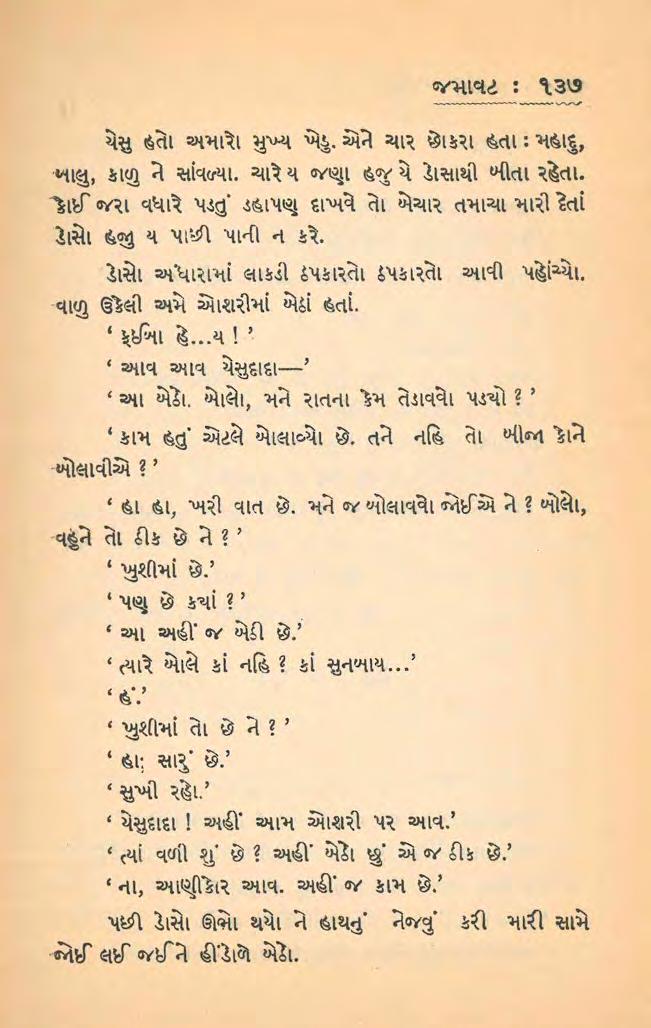 જમાવટ : ૧૩૭
યેસુ હતો અમારો મુખ્ય ખેડુ. એને ચાર છોકરા હતા : મહાદુ,
બાલુ, કાળુ ને સાંવળ્યા. ચારેય જણા હજુ યે ડોસાથી બીતા રહેતા.
કોઈ જરા વધારે પડતું ડહાપણ દાખવે તો બેચાર તમાચા મારી દેતાં
ડોસો હજી ય પાછી પાની ન કરે.
ડોસો અંધારામાં લાકડી ઠપકારતો ઠપકારતો આવી પહોંચ્યો.
વાળુ ઉકેલી અમે ઓશરીમાં બેઠાં હતાં.
‘ ફઈબા હે...ય ! ’
‘ આવ આવ યેસુદાદા—’
‘ આ બેઠો. બોલો, મને રાતના કેમ તેડાવવો પડયો ? ’
‘ કામ હતું એટલે બોલાવ્યો છે. તને નહિ તો બીજા કોને
બોલાવીએ ? ’
‘ હા હા, ખરી વાત છે. મને જ બોલાવવો જોઈએ ને ? બોલો,
વહુને તો ઠીક છે ને ? ’
‘ ખુશીમાં છે.’
‘ પણ છે કયાં ? ’
‘ આ અહીં જ બેઠી છે.’
‘ ત્યારે બોલે કાં નહિ ? કાં સુનબાય...’
‘ હં.’
‘ ખુશીમાં તો છે ને ? ’
‘ હા; સારું છે.’
‘ સુખી રહો.’
‘ યેસુદાદા ! અહીં આમ ઓશરી પર આવ.’
‘ ત્યાં વળી શું છે ? અહીં બેઠો છું એ જ ઠીક છે.’
‘ ના, આણીકોર આવ. અહીં જ કામ છે.’
પછી ડોસો ઊભો થયો ને હાથનું નેજવું કરી મારી સામે
જોઈ લઈ જઈને હીંડોળે બેઠો.